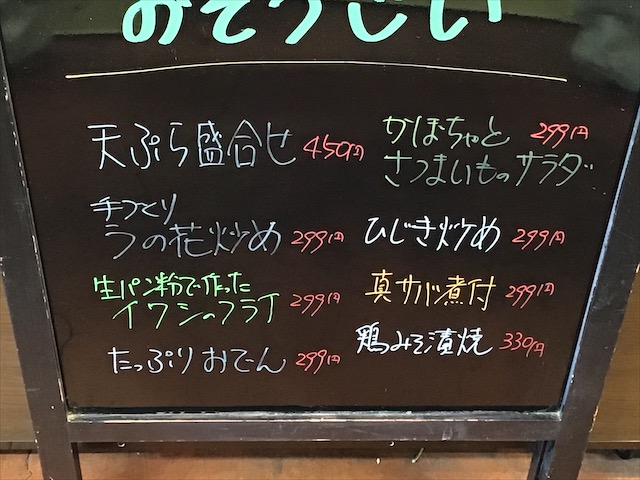 おそうじい
天ぷら盛合せ 450円
手つくり
うの花炒め 299円
生パン粉で作った
イワシのフライ 299円
たっぷりおでん 299円
かぼちゃと 299円
さつまいものサラダ
ひじき炒め 299円
真サバ煮付 299円
鶏みそ漬焼 330円